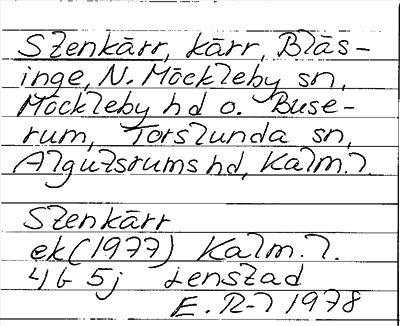 Stenkärr, kärr, Bläs-
inge, N. Möckleby sn,
Möckleby hd o. Buse-
rum, Torslunda sn,
Algutsrums hd, Kalm. l.
Stenkärr
ek (1977) Kalm. l.
4G 5j Lenstad
E. R-l 1978